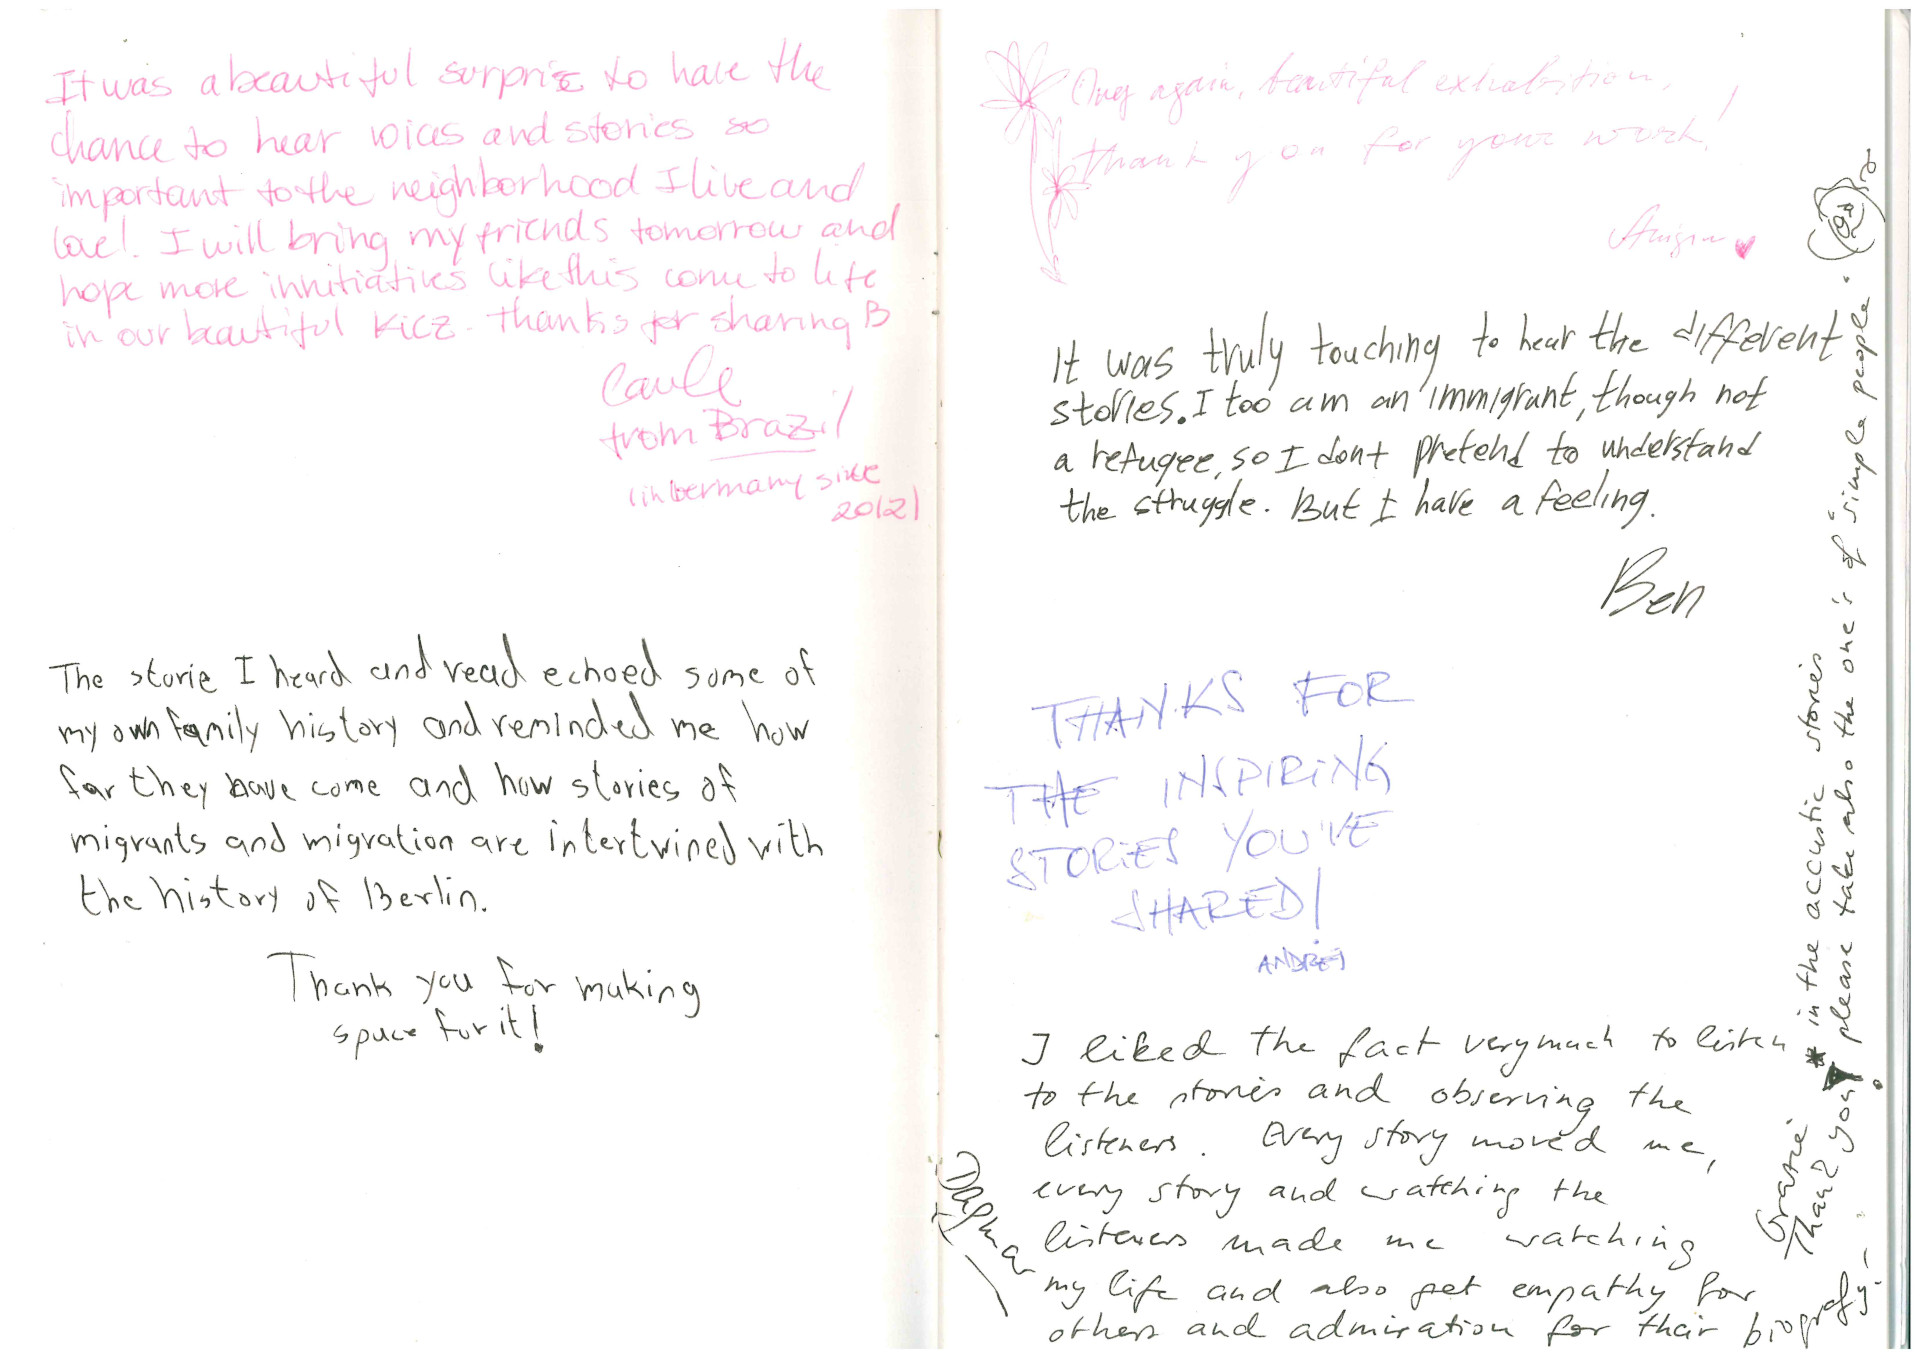 It was a beautiful surprise to have the
chance to hear voices and stories so
important to the neighborhood I live and
love!. I will bring my friends tomorrow and
hope more innitiatives like this come to life
in our beautiful Kiez. Thanks for sharing
from Brazil
(in Germany since
2012)
The storie I heard and read echoed some of
my own family history and reminded me how
far they have come and how stories of
migrants and migration are intertwined with
the history of Berlin.
Thank you for making
space for it!
again, beautiful exhabition,
thank you for your work!
It was truly touching to hear the different
stories. I too am an immigrant, though not
a refugee, so I dont pretend to understand
the struggle. But I have a feeling.
Ben
THANKS FOR
THE INSPIRING
STORIES YOU'VE
SHARED!
ANDREJ
I liked the fact very much to listen
to the stories and observing the
listeners. Every story moved me,
every story and watching the
listeners made me watching
my life and also get empathy for
others and admiration for their biografy.
Dagmar
Grazie
Thank you!
* in the accustic stories
please take also the one's of "simple people".